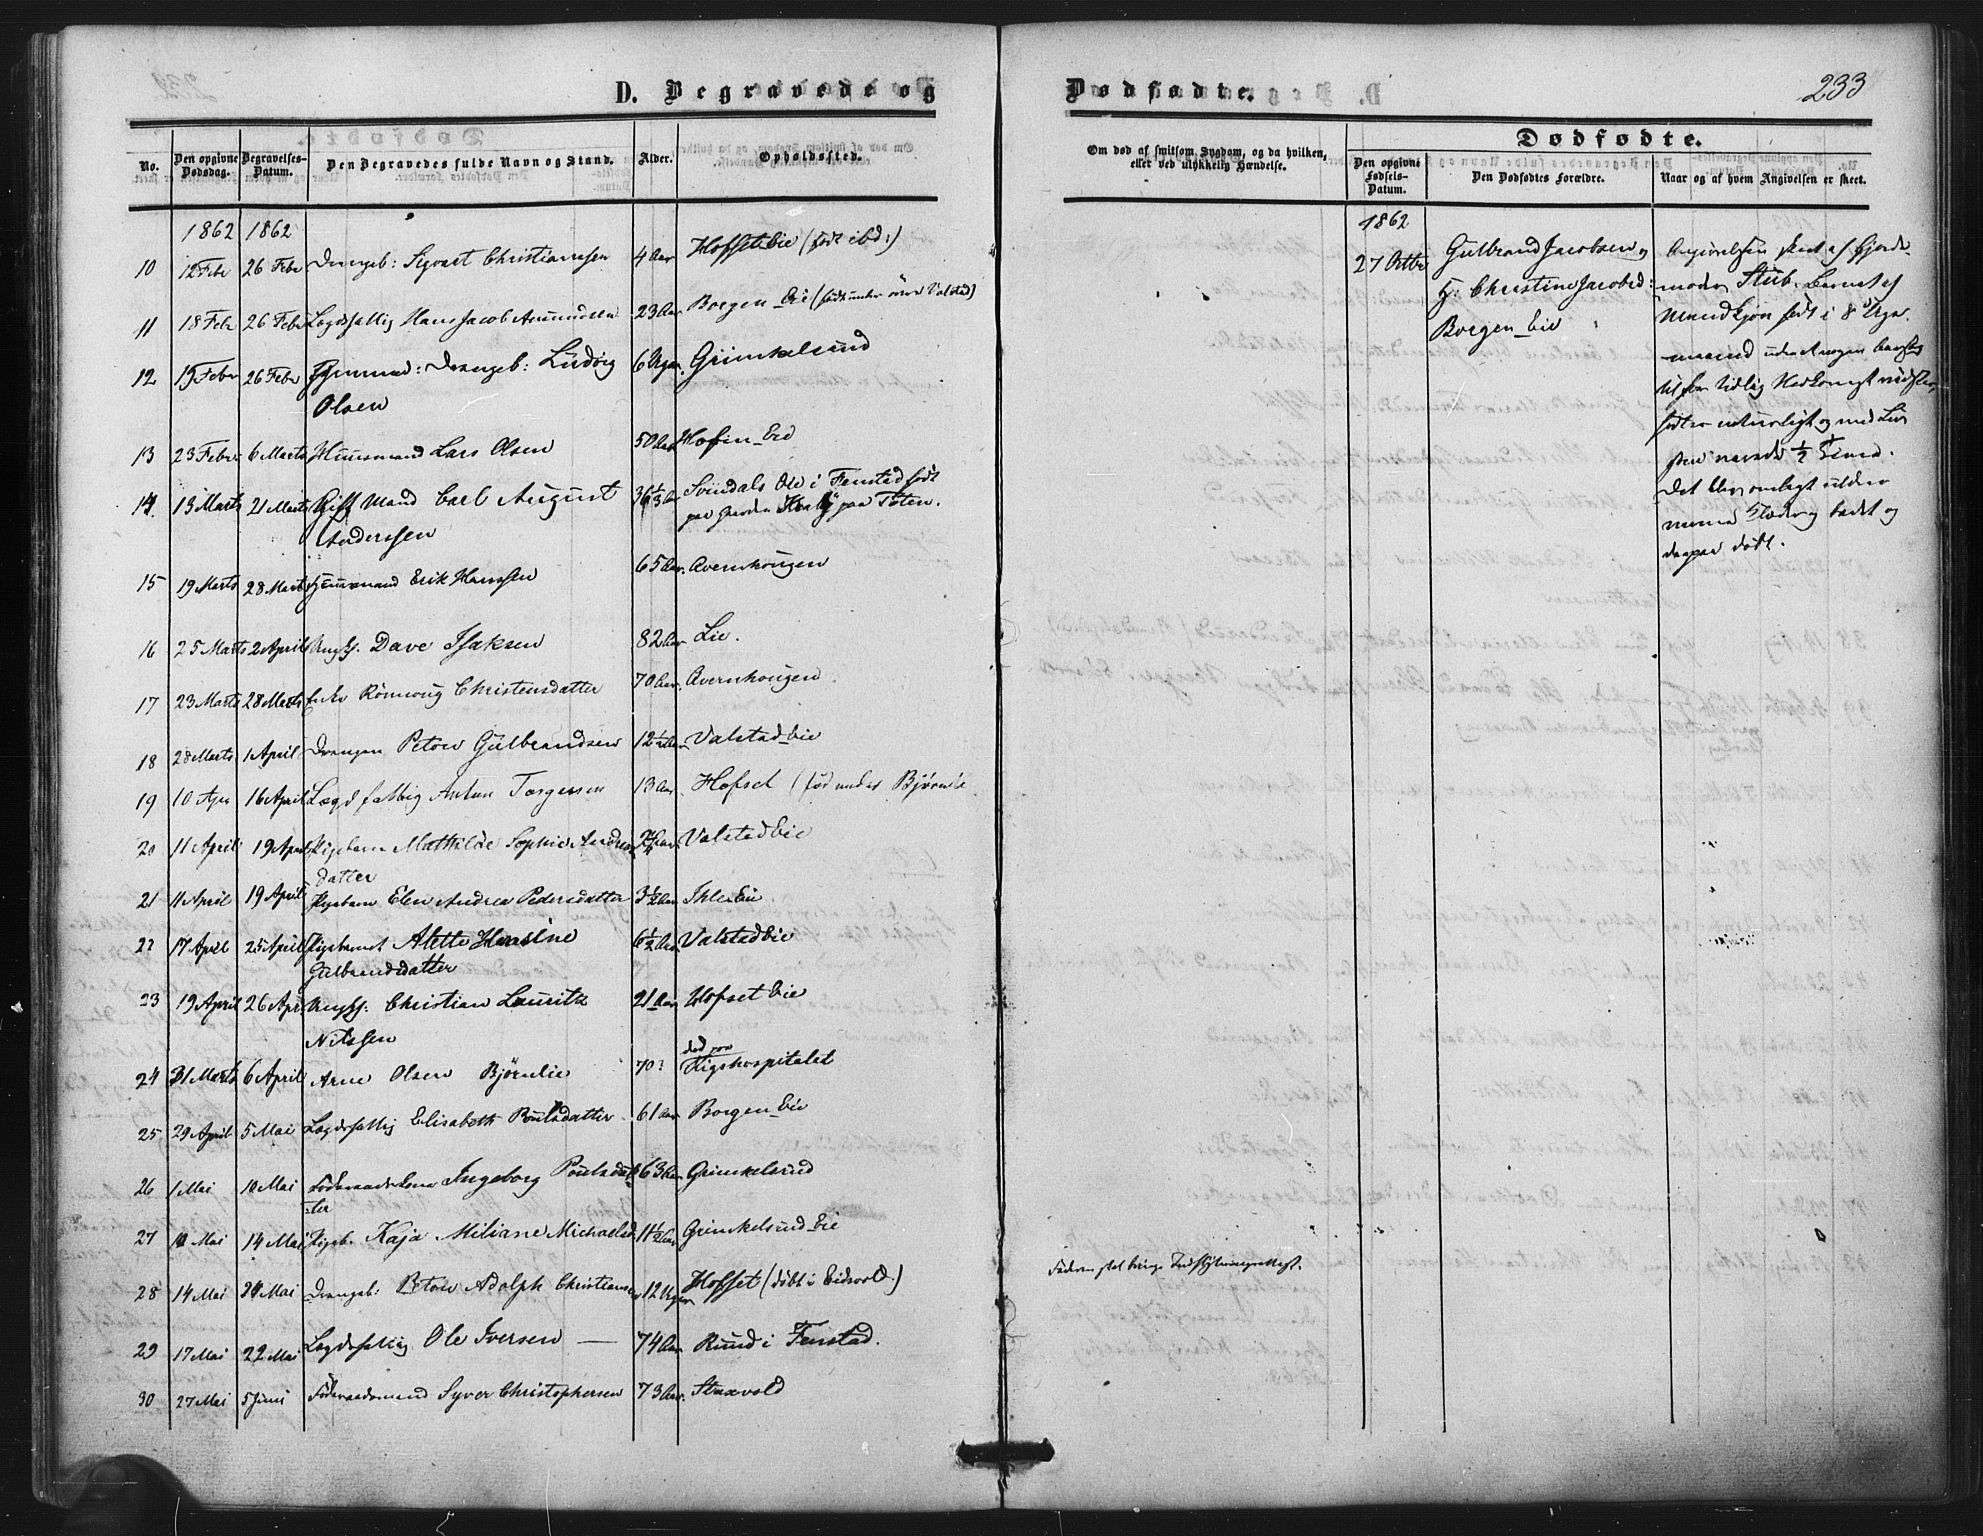 D. Begravede og
Dødfødte.
233
No.
Den opgivne Dødsdag.
Begravelses-Datum.
Den Begravedes fulde Navn og Stand.
Alder.
Opholdssted.
Om død af smitsom Sygdom, og da hvilken, eller ved ulykkelig Hændelse.
Dødfødte.
Den opgivne Fødsels-Datum.
Den Dødfødtes Forældre.
Naar og af hvem Angivelsen er skeet.
1862 1862
10 12 Febr 26 Febr Drengeb: Sigvart Christianssen 4 Aar Hofset Eie (født ibd:)
11 18 Febr 26 Febr Lægdsfattig Hans Jacob Amundsen 23 Aar Borgen Eie (født under Valstad)
12 19 Febr 26 Febr Drengeb: Ludvig 6 Uger Grimkelsrud
Olsen
13 23 Febr 6 Marts Huusmand Lars Olsen 50 Aar Hofin Eie
14 13 Marts 21 Marts Gift Mand Carl August 36 1/3 Aar Svindals Ole i Fenstad født
Anderssen paa Gaarden paa Toten.
15 19 Marts 28 Marts Huusmand Erik Hanssen 65 Aar Avernhougen
16 25 Marts 2 April Ungk. Dave Isaksen 82 Aar Lie.
17 23 Marts 28 Marts Enke Rønnoug Christensdatter 70 Aar Avernhougen
18 28 Marts 1 April Drengen Petow Gulbrandsen 12 1/2 Aar Valstad eie
19 10 Apr 16 April Lægdsfattig Anton Torgersen 13 Aar Hofset (fød under Bjørnlie
20 11 April 19 April Pigebarn Mathilde Sophie Andreas Aar Valstad Eie
datter
21 11 April 19 April Pigebarn Elen Andrea Pedersdatter 3 1/2 Aar Ihle Eie
22 17 April 25 April Pigebarnet Alette 6 1/2 Aar Valstad eie
Gulbrandsdatter
23 19 April 26 Apr Ungk. Christian Lauritz 21 Aar Hofset Eie
Nilssen
24 31 Marts 6 April Arne Olsen Bjørnlie 70? død paa Rigshospitalet
25 29 April 5 Mai Lægdsfattig Elisabeth Poulsdatter 61 Aar Borgen Eie
26 1 Mai 10 Mai Føderaadskone Ingeborg Poulsdat 63 Aar Grimkelsrud
ter
27 Mai 14 Mai Pigeb. Kaja Miliane Michaelsd 11 1/2 Aar Grimkelsrud Eie
28 14 Mai 24 Mai Drengeb: Petow Adolph Christiansen 12 Uger Hofset (døbt i Eidsvold.)
29 17 Mai 22 Mai Lægdsfattig Ole Iversen 74 Aar Ruud i Fenstad.
30 27 Mai 5 Juni Føderaadsmand Syver Christophersen 73 Aar Staxvold
1862
27 Octbr
Gulbrand Jacobsen og
H: Christine Jacobsd:
Borgen Eie
Angivelsen skeet af Gjorde-
moder Stub. Barnet af
Mandkjøn født i 8de Uger
maaned uden Nogen
til for tidlig Nedkomst
naturligt og med Liv
1/2 Time.
Det blev omlagt
Klæder og badet og
derpaa dødt.